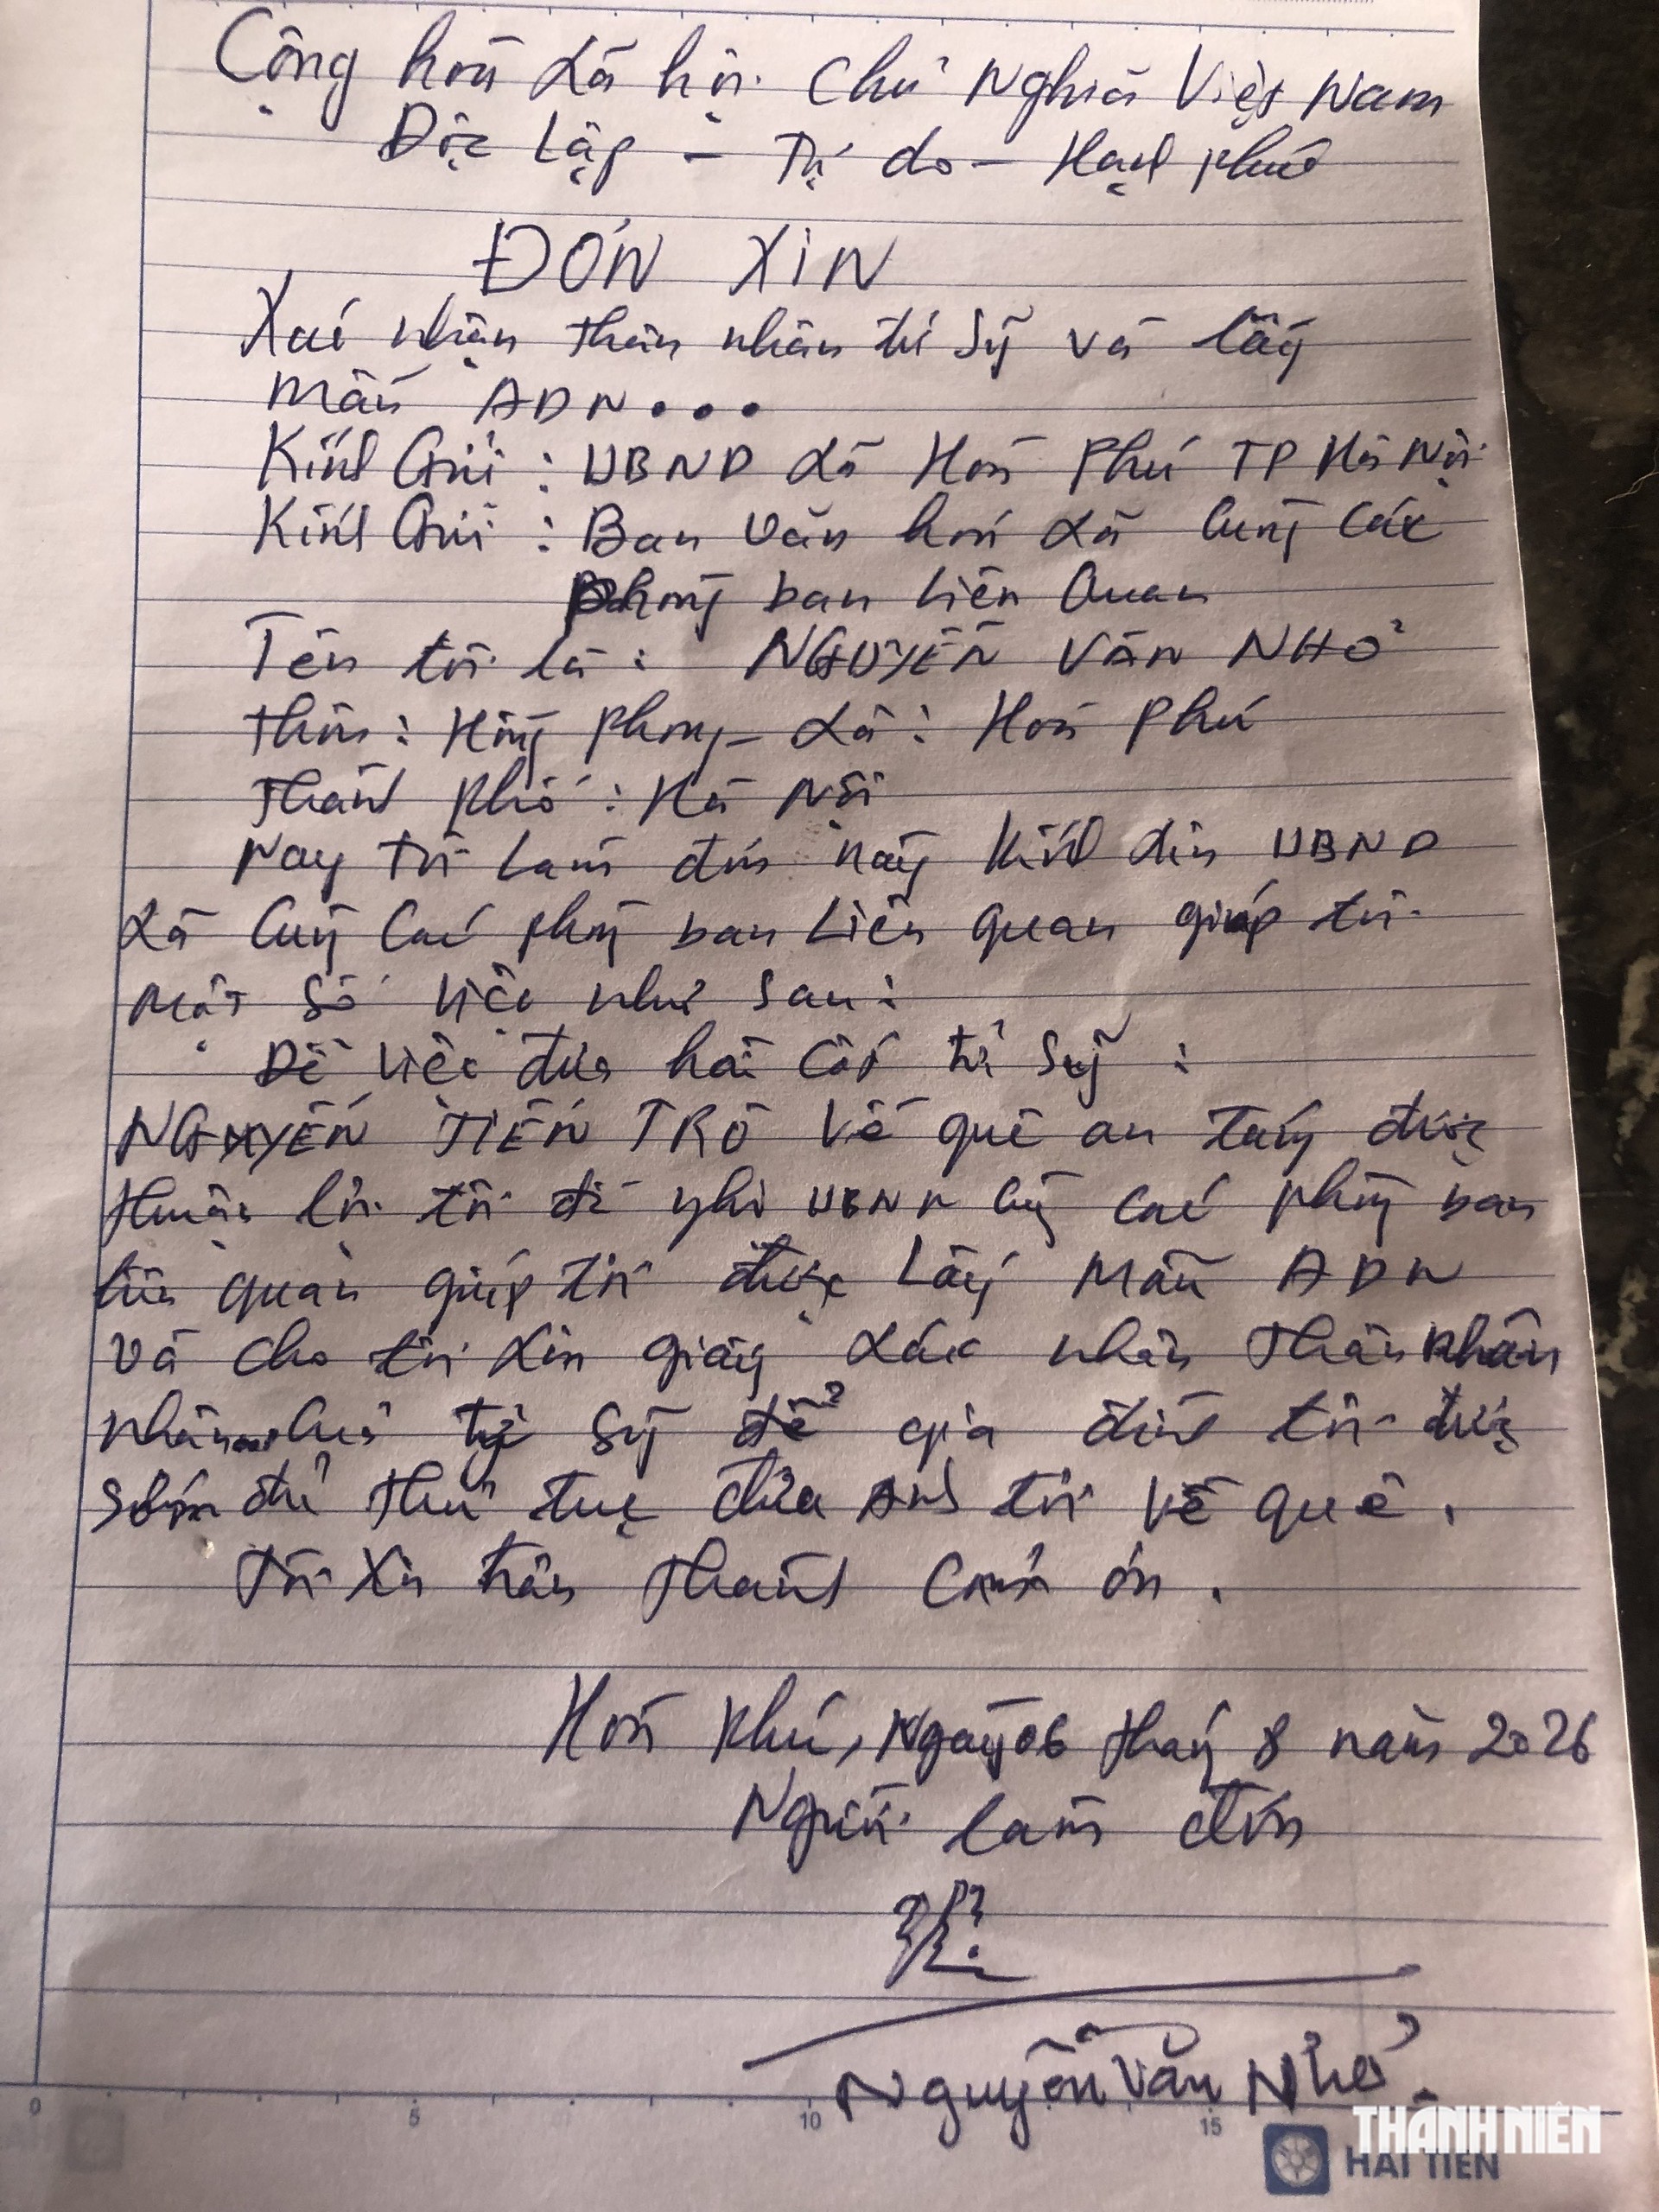 Cộng hoà xã hội chủ Nghĩa Việt Nam
Độc Lập - Tự do - Hạnh phúc
ĐƠN XIN
Xác nhận thân nhân liệt sỹ và lấy
mẫu ADN...
Kính Gửi : UBND xã Hoà Phú TP Hà Nội
Kính Gửi : Ban Văn hoá xã Cùng Các
phòng ban liên Quan
Tên tôi là : NGUYỄN VĂN NHỚ
Thôn : Hồng phong - xã : Hoà Phú
Thành phố : Hà Nội
Nay tôi làm đơn này kính xin UBND
xã Cùng Các phòng ban Liên quan giúp tôi
Một Số Việc như Sau :
Để Việc đưa hài Cốt liệt Sỹ :
NGUYỄN TIẾN TRÒ Về quê an táng được
thuận lợi tôi đề nghị UBND Cùng Các phòng ban
liên quan giúp tôi được Lấy Mẫu ADN
Và cho tôi xin giấy xác nhận Thân nhân
nhân Của liệt Sỹ để gia đình tôi được
sớm thủ tục đưa Anh tôi Về quê.
Tôi Xin trân thành Cảm ơn.
Hoà Phú, Ngày 06 tháng 8 năm 2026
Người làm đơn
Nguyễn Văn Nhớ
0 5 10 15
THANH NIÊN
HẢI TIẾN